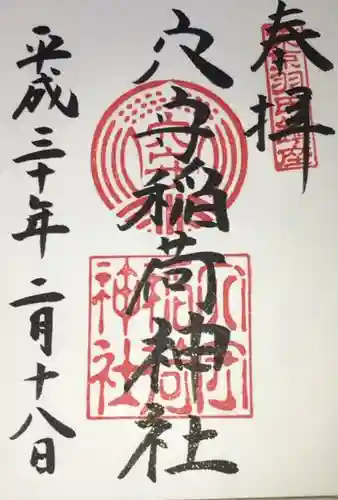 奉拝
東京羽田鎮座
穴守稲荷神社
穴守稲荷神社
平成三十年二月十八日